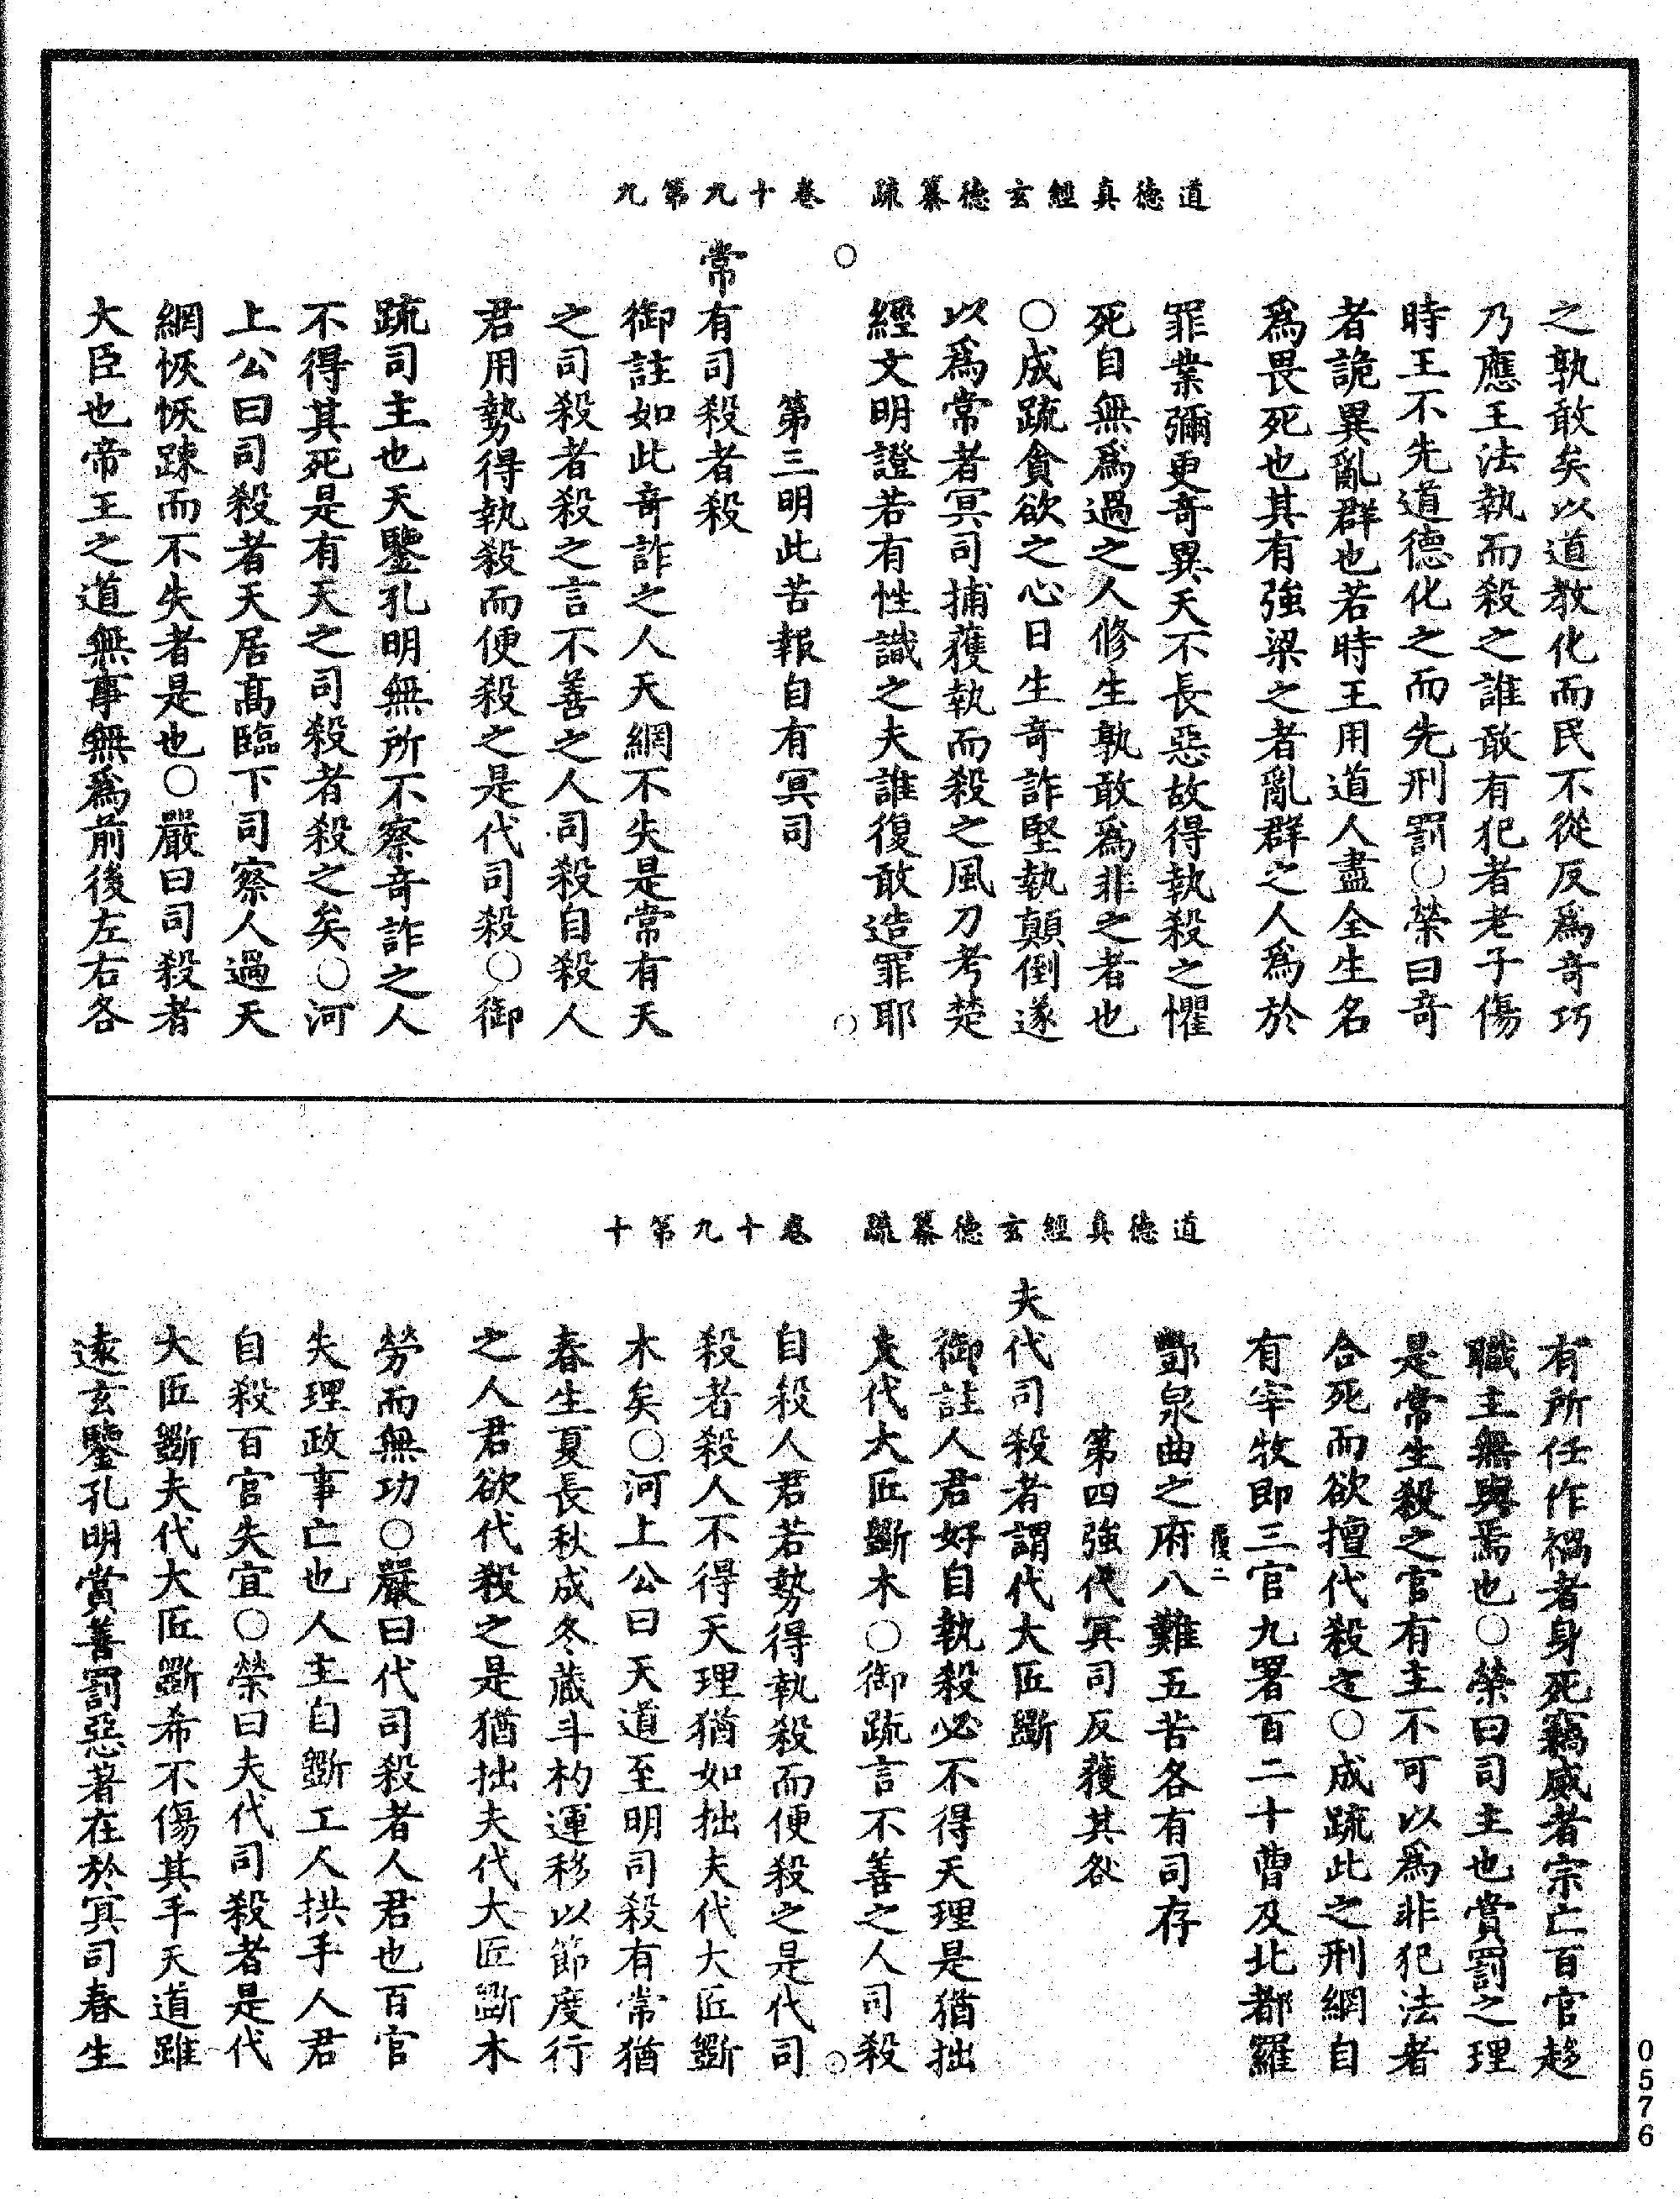 道德真經玄德纂疏　卷十九第九
之孰敢矣以道教化而民不從反爲奇巧
乃應王法執而殺之誰敢有犯者老子傷
時王不先道德化之而先刑罰○榮曰奇
者詭異亂群也若時王用道人盡全生名
爲畏死也其有強梁之者亂群之人爲於
罪業彌更奇異天不長惡故得執殺之懼
死自無爲過之人修生孰敢爲非之者也
○成疏貪欲之心日生奇詐堅執顛倒遂
以爲常者冥司捕蒦執而殺之風刀考楚
經文明證若有性識之夫誰復敢造罪耶
第三明此苦報自有冥司
常有司殺者殺
御註如此奇詐之人天網不失是常有天
之司殺者殺之言不善之人司殺自殺人
君用勢得執殺而便殺之是代司殺○御
疏司主也天鑒孔明無所不察奇詐之人
不得其死是有天之司殺者殺之矣○河
上公曰司殺者天居高臨下司察人過天
網恢恢踈而不失者是也○嚴曰司殺者
大臣也帝王之道無事無爲前後左右各
道德真經玄德纂疏　卷十九第十
有所任作禍者身死竊威者宗亡百官趍
職主無與焉也○榮曰司主也賞罰之理
是常生殺之官有主不可以爲非犯法者
合死而欲擅代殺之○成疏此之刑網自
有宰牧即三官九署百二十曹及北都羅
酆泉曲之府八難五苦各有司存
第四強代冥司反蒦其咎
夫代司殺者謂代大匠斲
御註人君好自執殺必不得天理是猶拙
夫代大匠斲木○御疏言不善之人司殺
自殺人君若勢得執殺而便殺之是代司
殺者殺人不得天理猶如拙夫代大匠斲
木矣○河上公曰天道至明司殺有常猶
春生夏長秋成冬藏斗杓運移以節度行
之人君欲代殺之是猶拙夫代大匠斲木
勞而無功○嚴曰代司殺者人君也百官
失理政事亡也人主自斲工人拱手人君
自殺百官失宜○榮曰夫代司殺者是代
大匠斲夫代大匠斲希不傷其手天道雖
遠玄鑒孔明賞善罰惡著在於冥司春生
0576